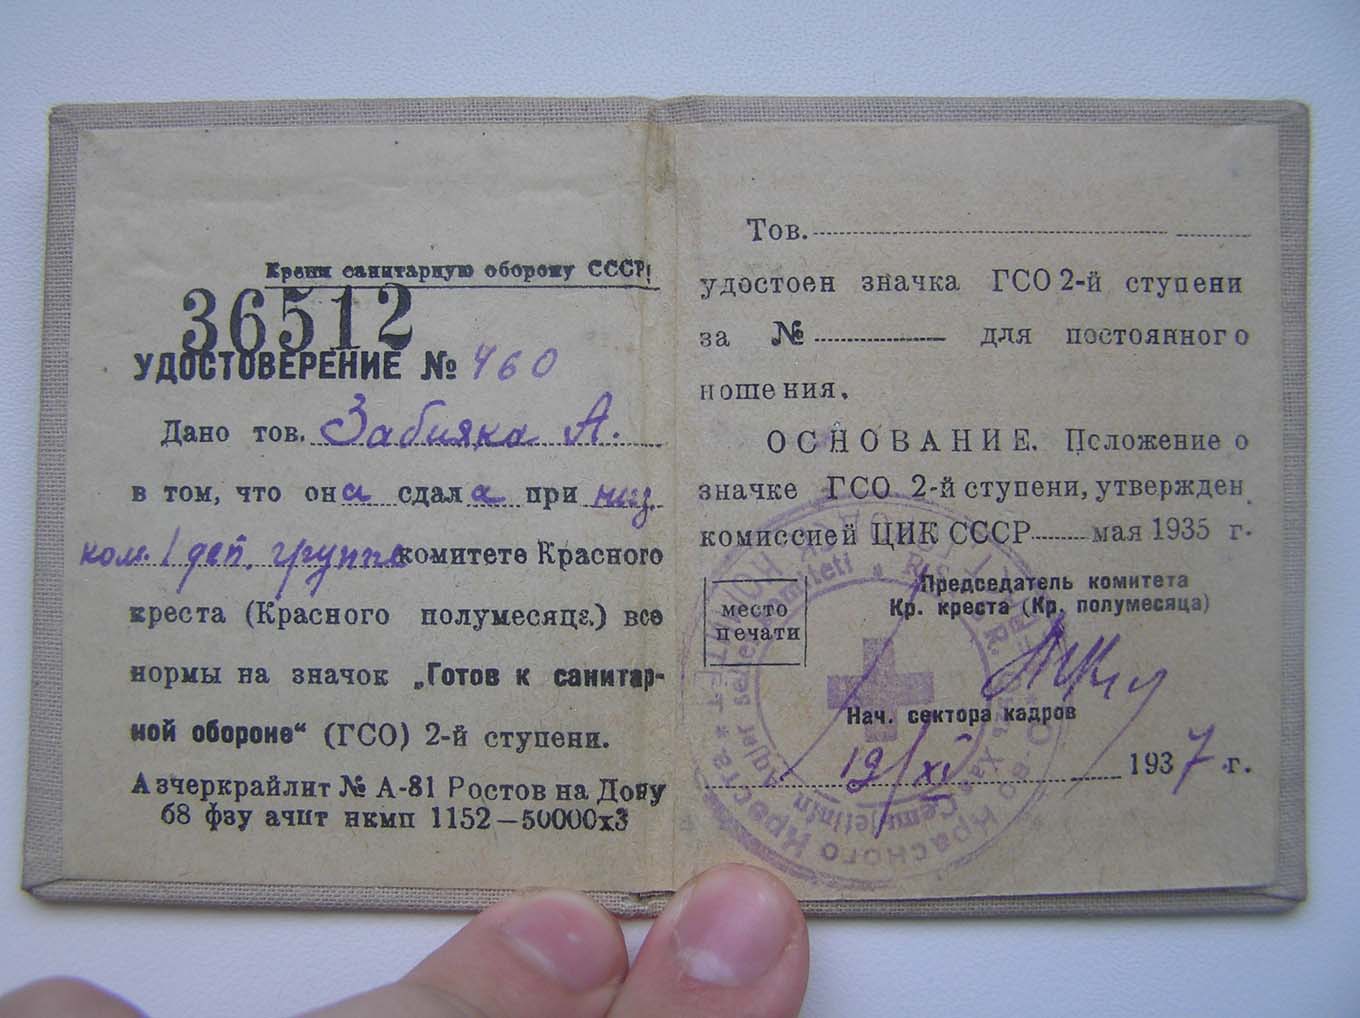 Крепи санитарную оборону СССР!
36512
УДОСТОВЕРЕНИЕ № 460
Дано тов. Забияка А.
в том, что она сдала при низ.
ком. 1 деп. группе комитете Красного
креста (Красного полумесяца) все
нормы на значок „Готов к санитар-
ной обороне“ (ГСО) 2-й ступени.
Азчеркрайлит № А-81 Ростов на Дону
68 фзу ачпт нкмп 1152—50000х3
Тов.
удостоен значка ГСО 2-й ступени
за № для постоянного
ношения.
ОСНОВАНИЕ. Положение о
значке ГСО 2-й ступени, утвержден
комиссией ЦИК СССР мая 1935 г.
место
печати
Председатель комитета
Кр. креста (Кр. полумесяца)
Нач. сектора кадров
19/XI 1937 г.
Красного Креста